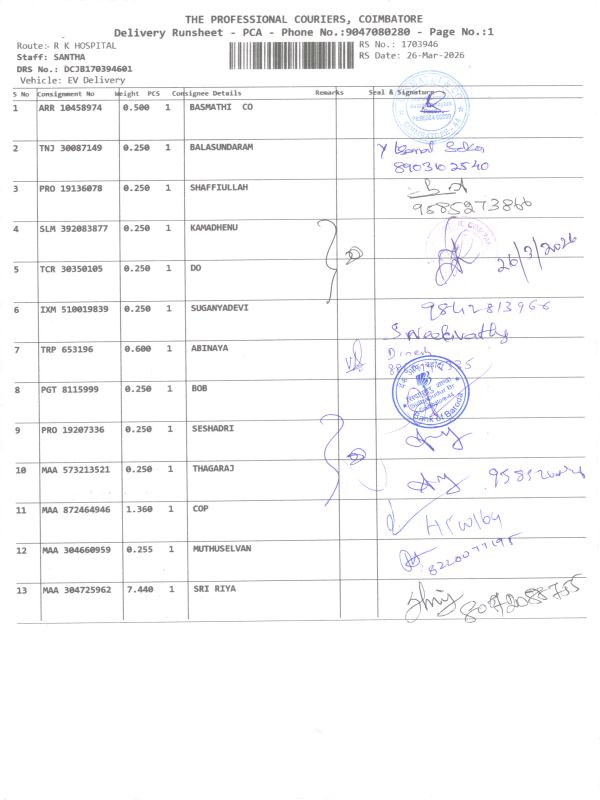 THE PROFESSIONAL COURIERS, COIMBATORE
Delivery Runsheet - PCA - Phone No.:9047080280 - Page No.:1
Route:- R K HOSPITAL
Staff: SANTHA
DRS No.: DCJB170394601
Vehicle: EV Delivery
RS No.: 1703946
RS Date: 26-Mar-2026
S No Consignment No Weight PCS Consignee Details Remarks Seal & Signature
1 ARR 10458974 0.500 1 BASMATHI CO
2 TNJ 30087149 0.250 1 BALASUNDARAM
8903102540
3 PRO 19136078 0.250 1 SHAFFIULLAH
9585273866
4 SLM 392083877 0.250 1 KAMADHENU
26/3/2026
5 TCR 30350105 0.250 1 DO
6 IXM 510019839 0.250 1 SUGANYADEVI 9842813966
7 TRP 653196 0.600 1 ABINAYA Dinesh
8 PGT 8115999 0.250 1 BOB
Bank of Baroda
9 PRO 19207336 0.250 1 SESHADRI
10 MAA 573213521 0.250 1 THAGARAJ
11 MAA 872464946 1.360 1 COP
12 MAA 304660959 0.255 1 MUTHUSELVAN
8220077195
13 MAA 304725962 7.440 1 SRI RIYA